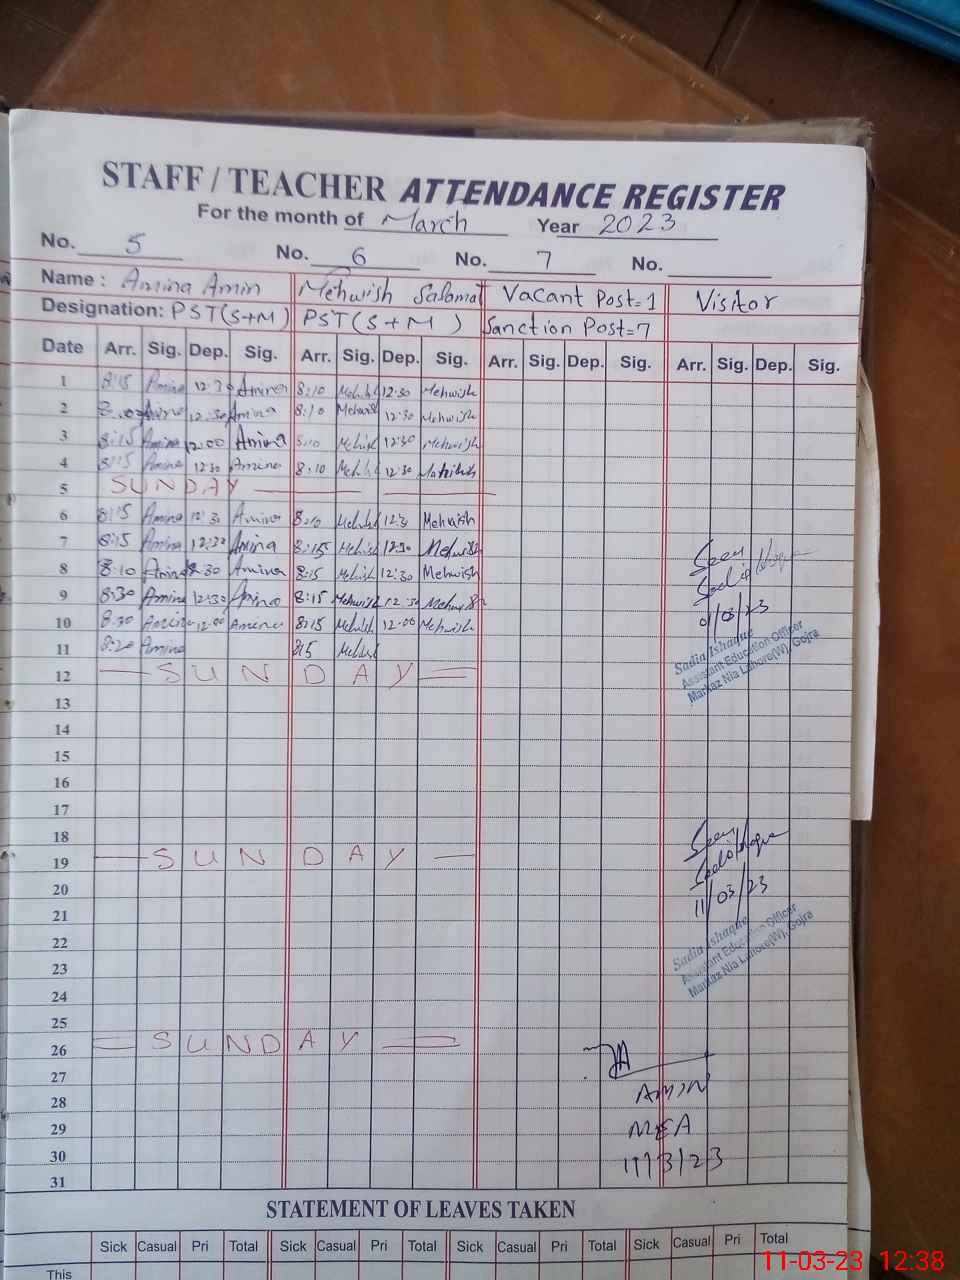 STAFF / TEACHER ATTENDANCE REGISTER
For the month of March Year 2023
No. 5 No. 6 No. 7 No.
Name : Amina Amin Mehwish Salamat Vacant Post=1 Visitor
Designation: PST(S+M) PST(S+M) Sanction Post=7
Date Arr. Sig. Dep. Sig. Arr. Sig. Dep. Sig. Arr. Sig. Dep. Sig. Arr. Sig. Dep. Sig.
1 8:15 Amina 12:30 Amina 8:10 12:30 Mehwish
2 Amina 12:30 Amina 8:10 Mehwish 12:30 Mehwish
3 8:15 Amina 12:00 Amina 8:10 12:30 Mehwish
4 8:15 Amina 12:30 Amina 8:10 12:30
5 SUNDAY
6 8:15 Amina 12:30 Amina 8:10 12:3 Mehwish
7 8:15 Amina 12:30 Amina 8:15 Mehwish 12:30 Mehwish
8 8:10 Amina Amina 8:15 Mehwish 12:30 Mehwish
9 8:30 Amina 12:30 Amina 8:15 Mehwish 12:30 Mehwish
10 8:30 Amina 12:00 Amina 8:15 Mehwish 12:00 Mehwish
11 8:20 Amina 815
12 SUNDAY
Seen
01/03/23
Sadia Ishaque
Assistant Education Officer
Markaz Nia Lahore(W), Gojra
13
14
15
16
17
18
19 SUNDAY
20
21
22
23
24
25
26 SUNDAY
27
28
29
30
31
Seen
11/03/23
Sadia Ishaque
Assistant Education Officer
Markaz Nia Lahore(W), Gojra
AMIN
MEA
11/3/23
STATEMENT OF LEAVES TAKEN
Sick Casual Pri Total Sick Casual Pri Total Sick Casual Pri Total Sick Casual Pri Total
This
11-03-23 12:38